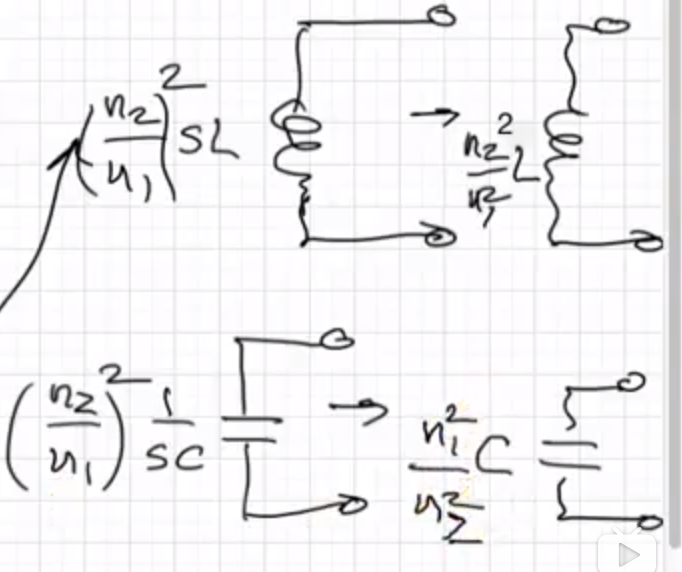 (n₂/n₁)² SL → n₂²/n₁² L
(n₂/n₁)² 1/SC → n₁²/n₂² C